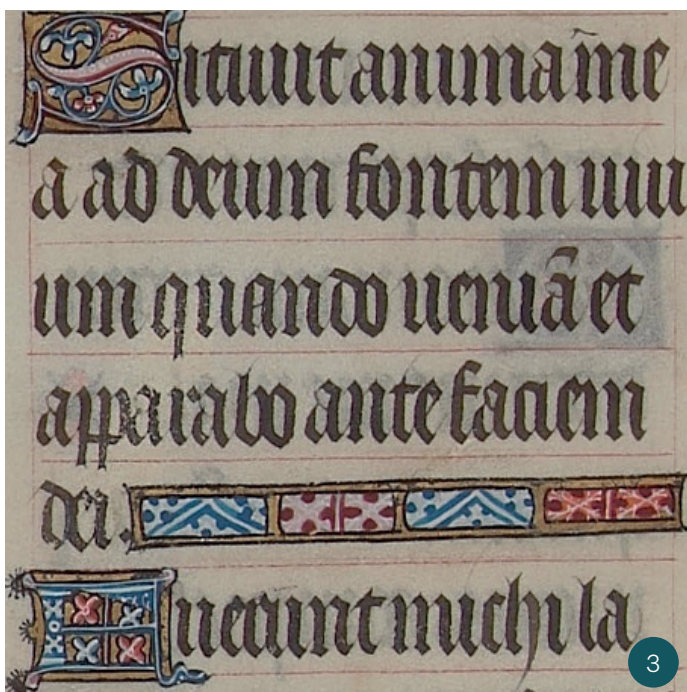 Sitiuit anima me
a ad deum fontem uiu
um quando ueniā et
apparabo ante faciem
dei.
Fuerunt michi la
3